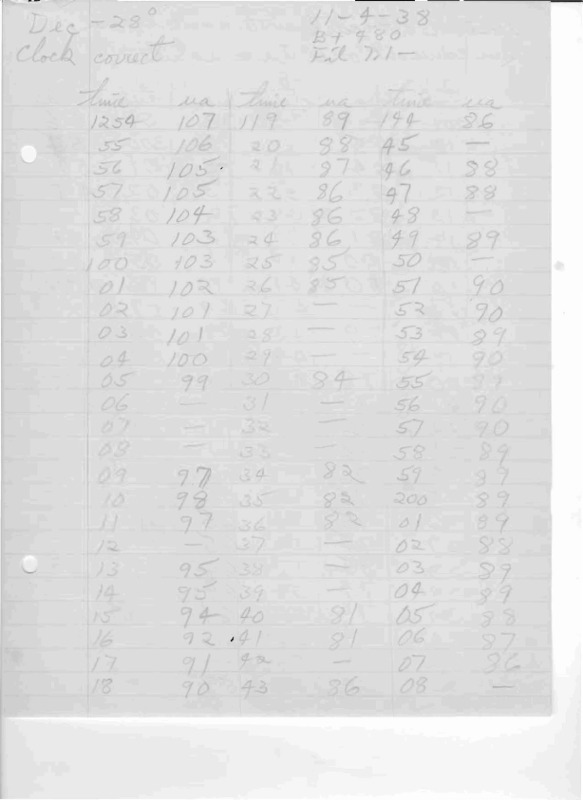 Dec -28° 11-4-38
B+ 480
Clock correct Fil 7.1-
time ua time ua time ua
1254 107 119 89 144 86
55 106 20 88 45 —
56 105 21 87 46 88
57 105 22 86 47 88
58 104 23 86 48 —
59 103 24 86 49 89
100 103 25 85 50 —
01 102 26 85 51 90
02 101 27 — 52 90
03 101 28 — 53 89
04 100 29 — 54 90
05 99 30 84 55 89
06 — 31 — 56 90
07 — 32 — 57 90
08 — 33 — 58 89
09 97 34 82 59 89
10 98 35 82 200 89
11 97 36 82 01 89
12 — 37 — 02 88
13 95 38 — 03 89
14 95 39 — 04 89
15 94 40 81 05 88
16 92 41 81 06 87
17 91 42 — 07 86
18 90 43 86 08 —